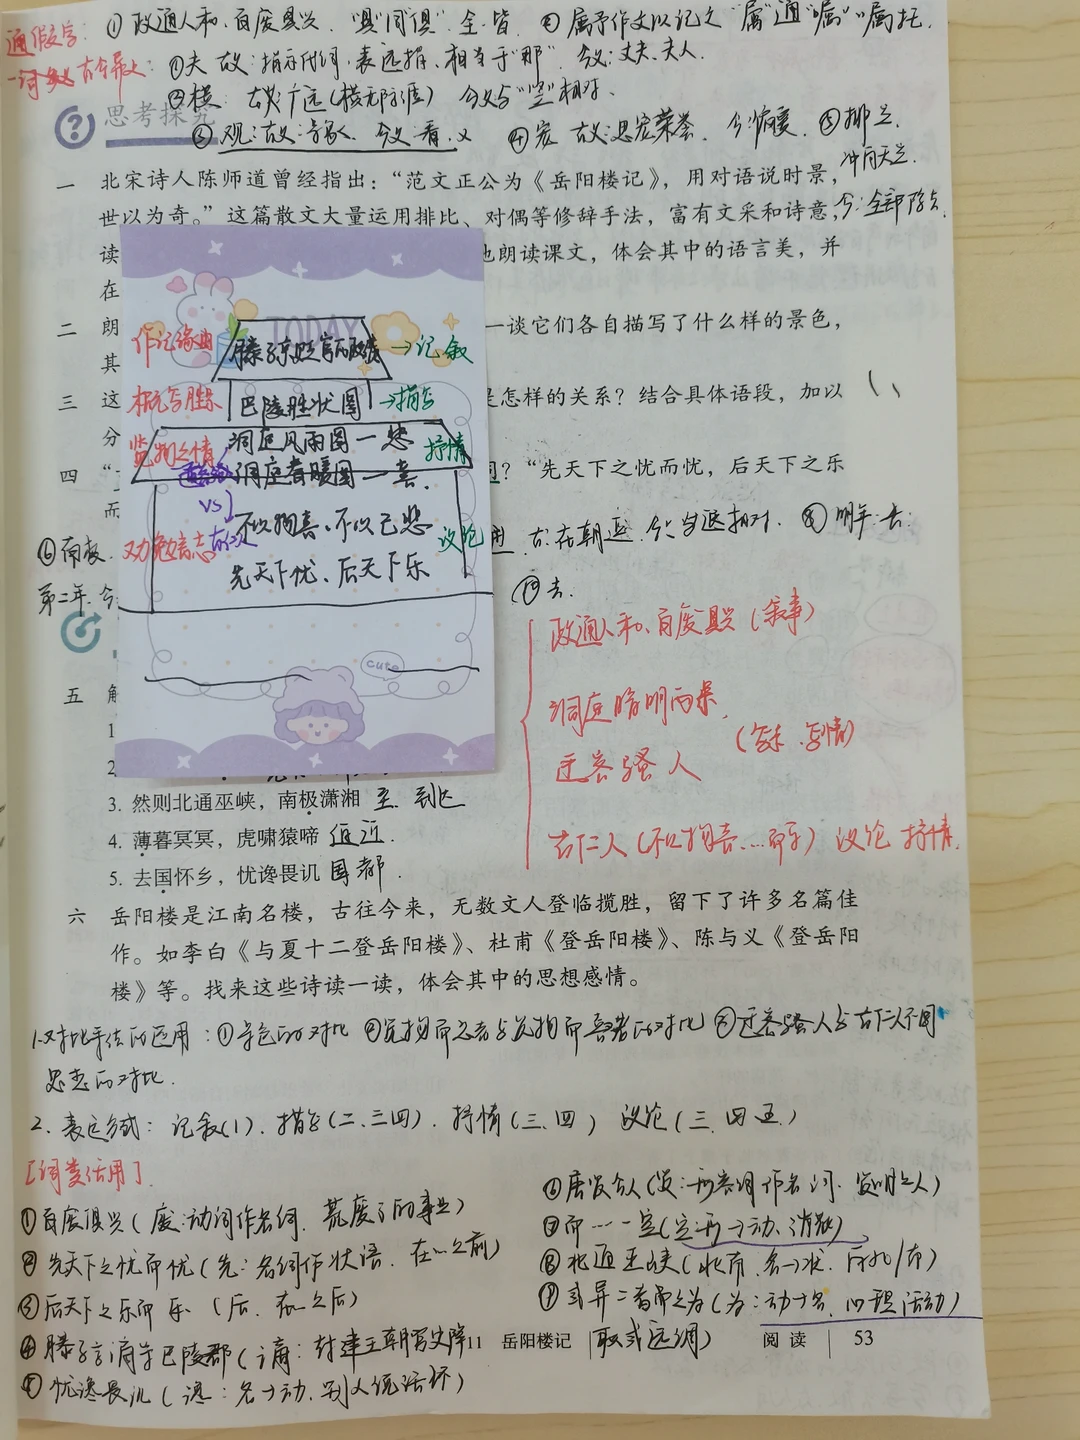 通假字： ①政通人和、百废具兴 "具"同"俱" 全、皆 ②属予作文以记之 "属"通"嘱" 嘱托.
古今异义： ①夫 古义：指示代词，表远指，相当于"那" 今义：丈夫、夫人.
②横 古义：广远(横无际涯) 今义与"竖"相对.
思考探究
③观：古义： 今义：看. ④宠 古义：恩宠荣誉. 今：偏爱. ⑤
一 北宋诗人陈师道曾经指出：“范文正公为《岳阳楼记》，用对语说时景，
世以为奇。”这篇散文大量运用排比、对偶等修辞手法，富有文采和诗意，
今：全部
读
地朗读课文，体会其中的语言美，并
在
二 朗
一谈它们各自描写了什么样的景色，
其
三 这
是怎样的关系？结合具体语段，加以
分
四 “
？“先天下之忧而忧，后天下之乐
而
TODAY
作记缘由 滕子京 →记叙
概写胜景 巴陵胜状图 →描写
览物之情 洞庭风雨图一悲 抒情
洞庭春暖图一喜.
VS
不以物喜、不以己悲 议论
先天下忧、后天下乐
cute
⑥南极
古：在朝廷 今： ⑧明年：古：
第二年.今
⑩去.
政通人和、百废具兴(叙事)
洞庭晦明两景.
迁客骚人
古仁人(不以物喜、…) 议论 抒情.
五 解
1
2
3. 然则北通巫峡，南极潇湘 至、到达
4. 薄暮冥冥，虎啸猿啼 迫近.
5. 去国怀乡，忧谗畏讥 国都.
六 岳阳楼是江南名楼，古往今来，无数文人登临揽胜，留下了许多名篇佳
作。如李白《与夏十二登岳阳楼》、杜甫《登岳阳楼》、陈与义《登岳阳
楼》等。找来这些诗读一读，体会其中的思想感情。
1.对比手法的运用：①景色的对比 ②览物而悲者与览物而喜者的对比 ③迁客骚人与古仁人不同
思志的对比.
2. 表达方式： 记叙(1)、描写(二、三四)、抒情(三、四) 议论(三、四、五)
[词类活用]
①百废俱兴(废：动词作名词、荒废了的事业)
②先天下之忧而忧(先：名词作状语、在…之前)
③后天下之乐而乐 (后、在…之后)
④滕子京谪守巴陵郡(谪：封建王朝官吏降
⑤忧谗畏讥(谗：名→动、别人说坏话)
⑥
⑦而……一空(空：形→动、消散)
⑧北通巫峡(北南、名→状、向北/南)
⑨或异二者之为(为：动→名、心理活动)
职或远调)
11 岳阳楼记
阅读 53